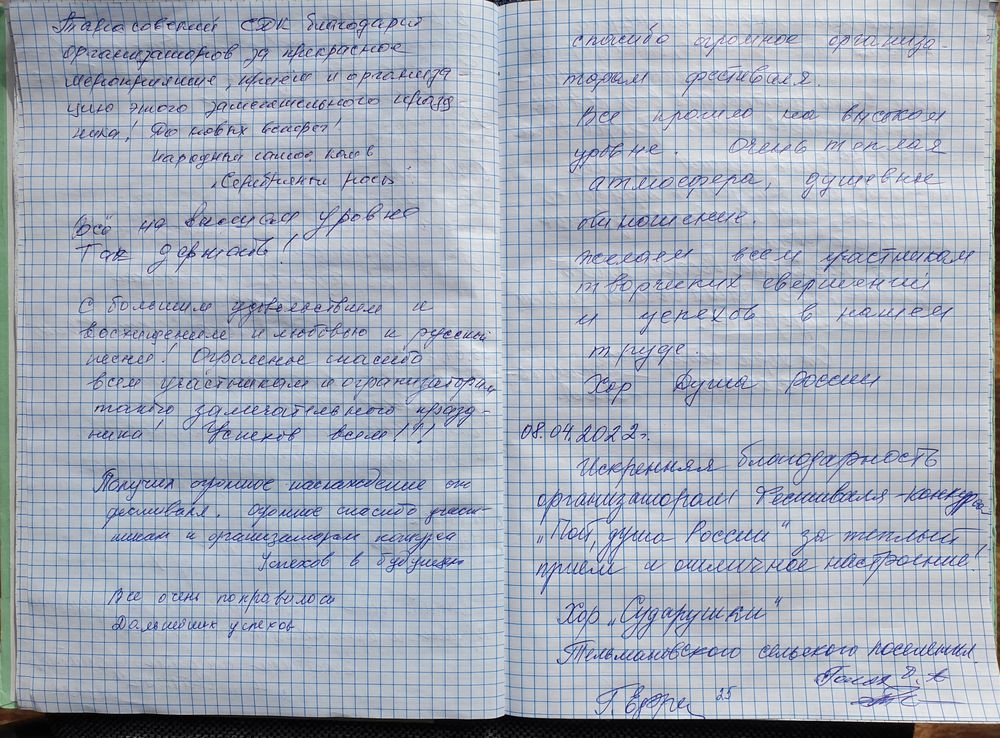 Тарасовский СДК благодарит
организаторов за прекрасное
мероприятие, прием и организа-
цию этого замечательного празд-
ника, До новых встреч!
Народный самод. колл-в
"Серебряные росы".
Всё на высшем уровне
Так держать!
С большим удовольствием и
восхищением и любовью к русской
песне! Огромное спасибо
всем участникам и огранизаторам
такого замечательного празд-
ника! Успехов всем!!!
Получил огромное наслаждение от
фестиваля. Огромное спасибо участ-
никам и организаторам конкурса
Успехов в будущем
Все очень понравилось
Дальнейших успехов
спасибо огромное организа-
торам фестиваля.
Все прошло на высоком
уровне. Очень теплая
атмосфера, душевное
отношение.
желаем всем участникам
творческих свершений
и успехов в нашем
труде.
Хор Душа России
08.04.2022г.
Искренняя благодарность
организаторам Фестиваля-конкурса
"Пой, душа России" за теплый
прием и отличное настроение!
Хор "Сударушки"
Тельмановского сельского поселения.